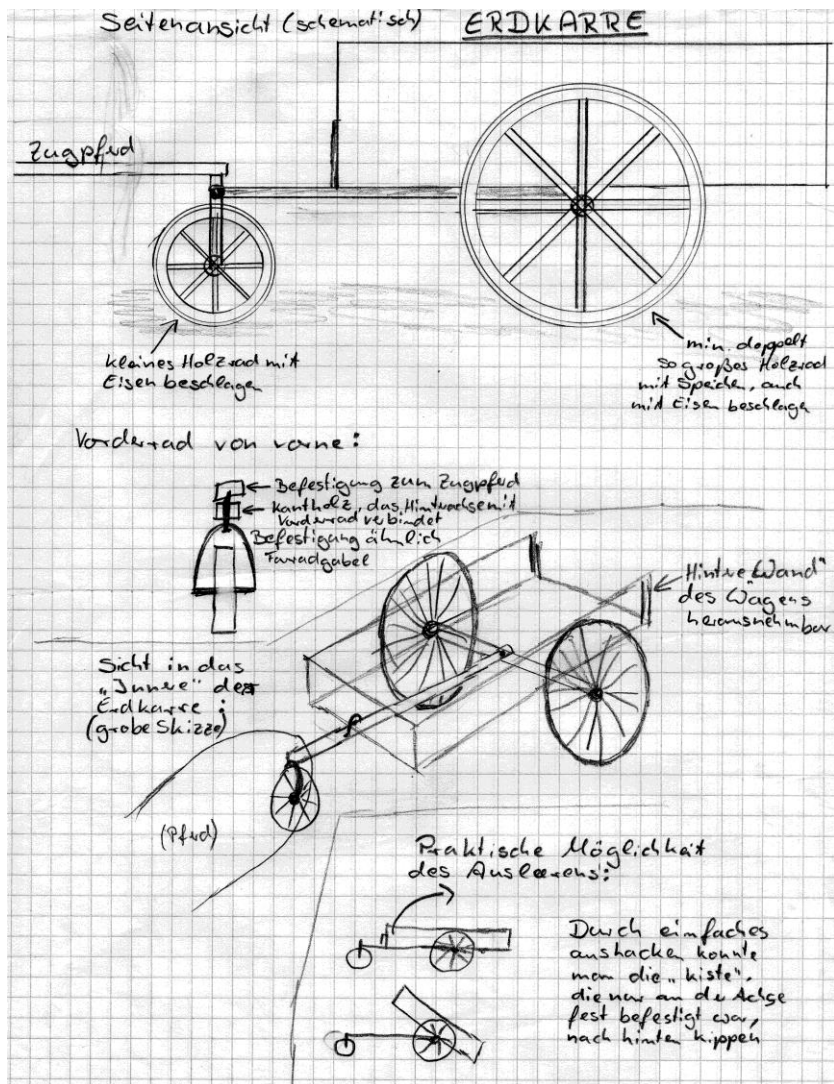 Seitenansicht (schematisch)
ERDKARRE
Zugpferd
kleines Holzrad mit
Eisen beschlagen
min. doppelt
so großes Holzrad
mit Speichen, auch
mit Eisen beschlagen
Vorderrad von vorne:
Befestigung zum Zugpferd
Kantholz, das Hinterachse mit
Vorderrad verbindet
Befestigung ähnlich
Farradgabel
Hintere Wand"
des Wagens
herausnehmbar
Sicht in das
„Innere" der
Erdkarre:
(grobe Skizze)
(Pferd)
Praktische Möglichkeit
des Ausleerens:
Durch einfaches
aushacken konnte
man die „Kiste",
die nur an der Achse
fest befestigt war,
nach hinten kippen